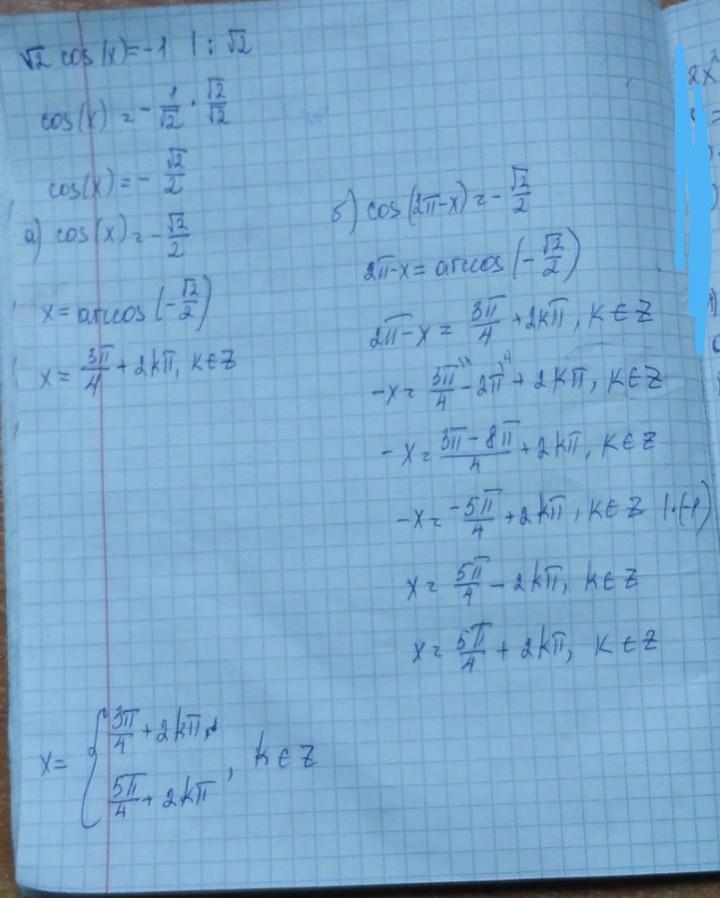 √2 cos(x)=-1 | : √2
cos(x) = - 1/√2 · √2/√2
cos(x) = - √2/2
а) cos(x) = - √2/2
x = arccos(-√2/2)
x = 3π/4 + 2kπ, k∈Z
б) cos(2π-x) = - √2/2
2π-x = arccos(-√2/2)
2π-x = 3π/4 + 2kπ, k∈Z
-x = 3π/4 - 2π + 2kπ, k∈Z
-x = 3π-8π/4 + 2kπ, k∈Z
-x = -5π/4 + 2kπ, k∈Z | ·(-1)
x = 5π/4 - 2kπ, k∈Z
x = 5π/4 + 2kπ, k∈Z
x = { 3π/4 + 2kπ
5π/4 + 2kπ , k∈Z
2x